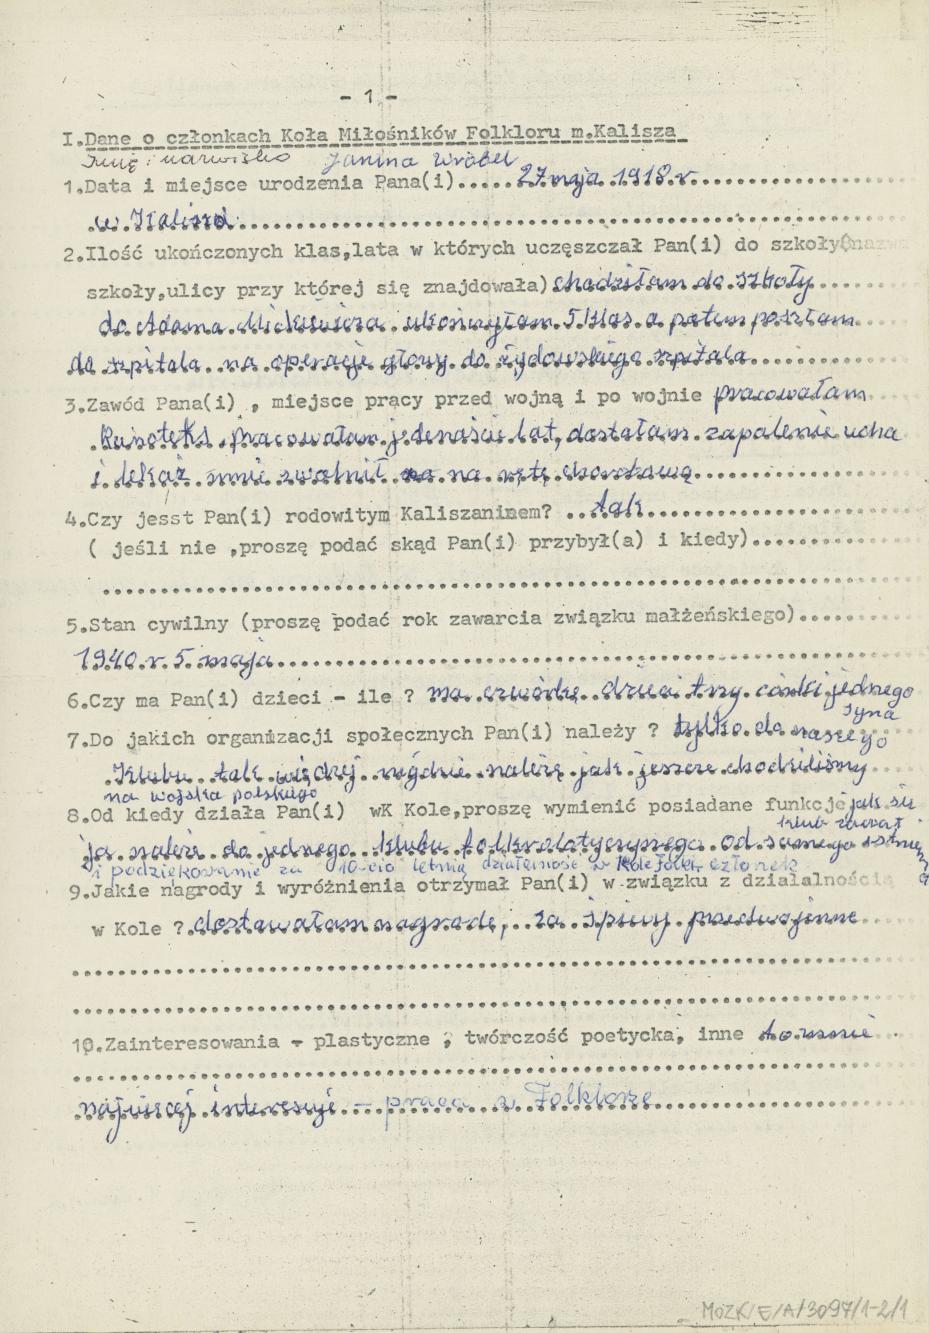 - 1 -
I.Dane o członkach Koła Miłośników Folkloru m.Kalisza
Imię i nazwisko Janina Wróbel
1.Data i miejsce urodzenia Pana(i).....27 maja 1918 r
w Kaliszu
2.Ilość ukończonych klas,lata w których uczęszczał Pan(i) do szkoły(nazwa
szkoły,ulicy przy której się znajdowała) chodziłam do szkoły
do Adama Mickiewicza ukończyłam 5 klas a potem poszłam
do szpitala na operacje głowy do żydowskiego szpitala
3.Zawód Pana(i) , miejsce pracy przed wojną i po wojnie pracowałam
Runoteks pracowałam jedenaście lat, dostałam zapalenie ucha
i lekaż mnie zwolnił na rętę chorobową
4.Czy jesst Pan(i) rodowitym Kaliszaninem? ..tak
( jeśli nie ,proszę podać skąd Pan(i) przybył(a) i kiedy)
5.Stan cywilny (proszę podać rok zawarcia związku małżeńskiego)
1940 r 5 maja
6.Czy ma Pan(i) dzieci - ile ? ma czwórkę dzieci trzy córki jednego
syna
7.Do jakich organizacji społecznych Pan(i) należy ? tylko do naszego
klubu tak więdzej nigdzie należę jak jeszcze chodziliśmy
na wojska polskiego
8.Od kiedy działa Pan(i) wK Kole,proszę wymienić posiadane funkcje jak się
klub zawrał
ja należe do jednego klubu od samego
i podziękowanie za 10-cio letnią działalność w Kole Folk. członek
9.Jakie nagrody i wyróżnienia otrzymał Pan(i) w związku z działalnością
w Kole ? dostawałam nagrode, za śpiewy przedwojenne
10.Zainteresowania - plastyczne , twórczość poetycka, inne to mnie
najwięcej interesuje - praca w Folklorze
MOZK/E/A/3097/1-2/1